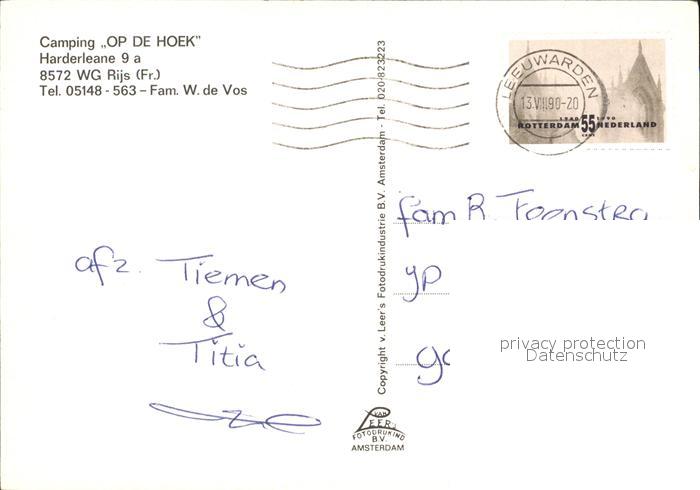 Camping „OP DE HOEK”
Harderleane 9 a
8572 WG Rijs (Fr.)
Tel. 05148 - 563 – Fam. W. de Vos
LEEUWARDEN
13.VII.90-20
1940 1990
ROTTERDAM 55 NEDERLAND
cent
Copyright v. Leer's Fotodrukindustrie B.V. Amsterdam - Tel. 020-823223
fam R. Toonstra
yp
afz. Tiemen
&
Titia
privacy protection
Datenschutz
VAN
LEER's
FOTODRUKIND
B.V.
AMSTERDAM